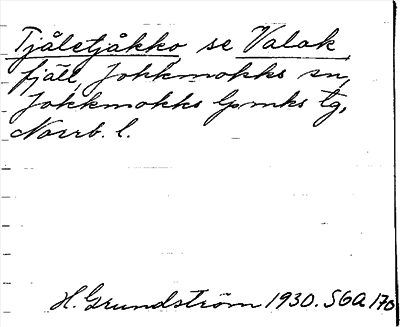 Tjåletjåkko se Valak,
fjäll, Jokkmokks sn,
Jokkmokks lpmks tg,
Norrb. l.
H. Grundström 1930. SGA 170